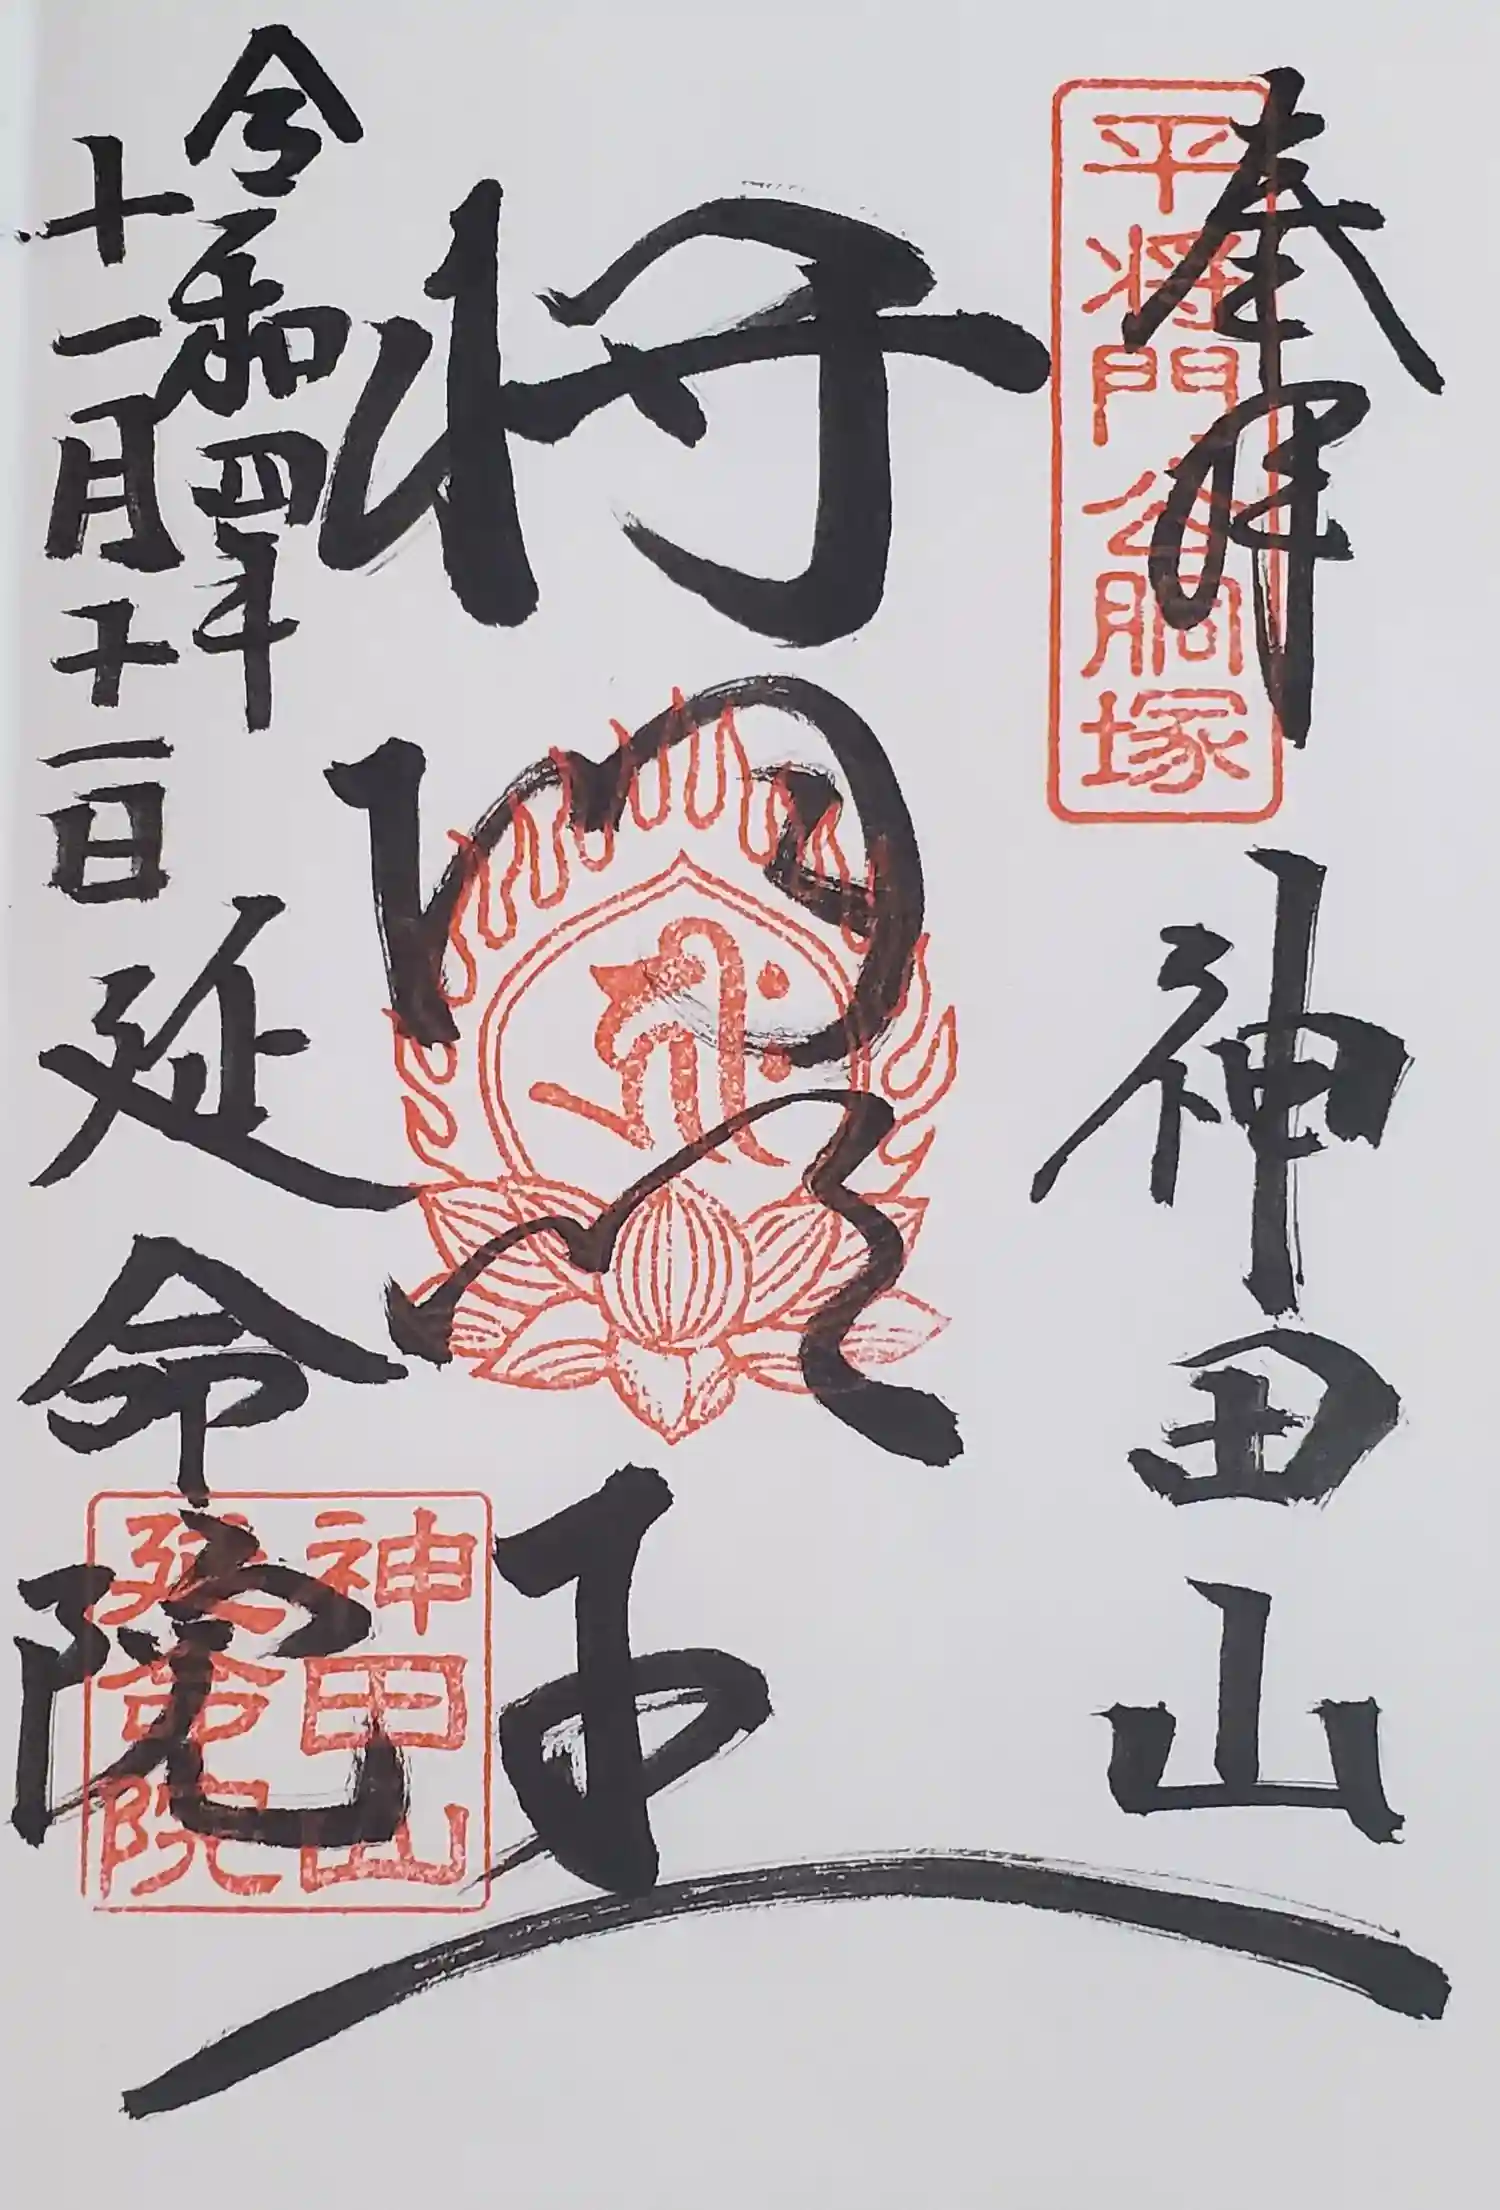 奉拝
平将門公胴塚
神田山
将門
令和四年
十一月十一日
延命院
神田山
延命院